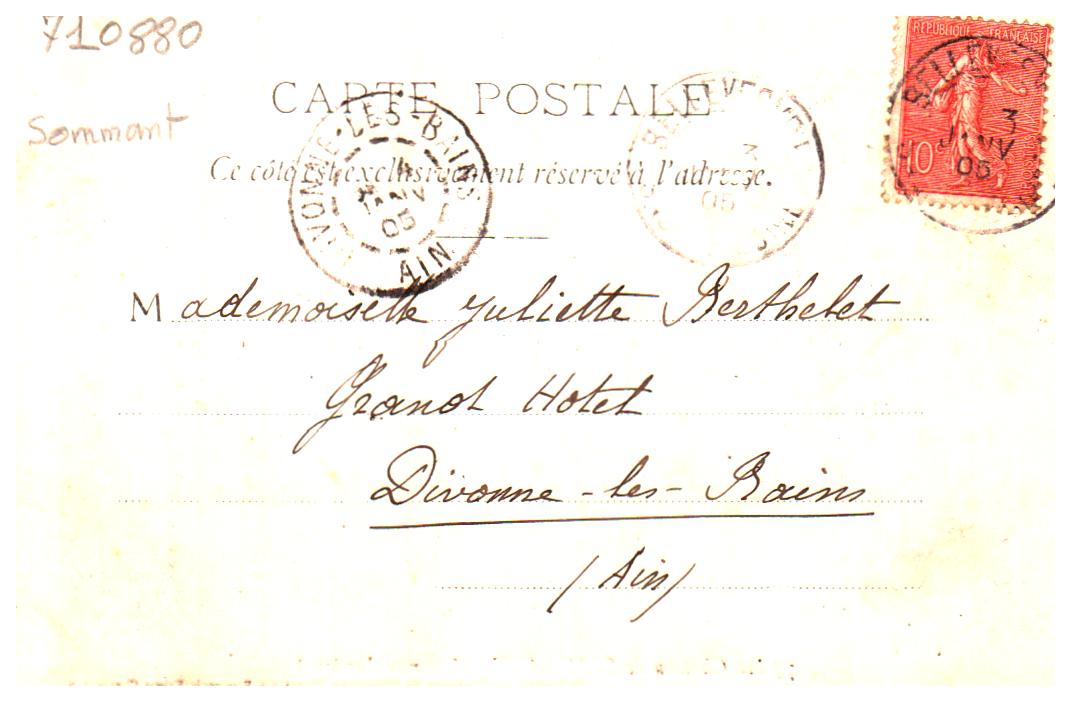 710880
Sommant
RÉPUBLIQUE FRANÇAISE
10c
3
JANV
05
CARTE POSTALE
Ce côté est exclusivement réservé à l'adresse.
DIVONNE-LES-BAINS
4
JANV
05
AIN
3
05
Mademoiselle Juliette Berthelet
Grand Hotel
Divonne-les-Bains
(Ain)